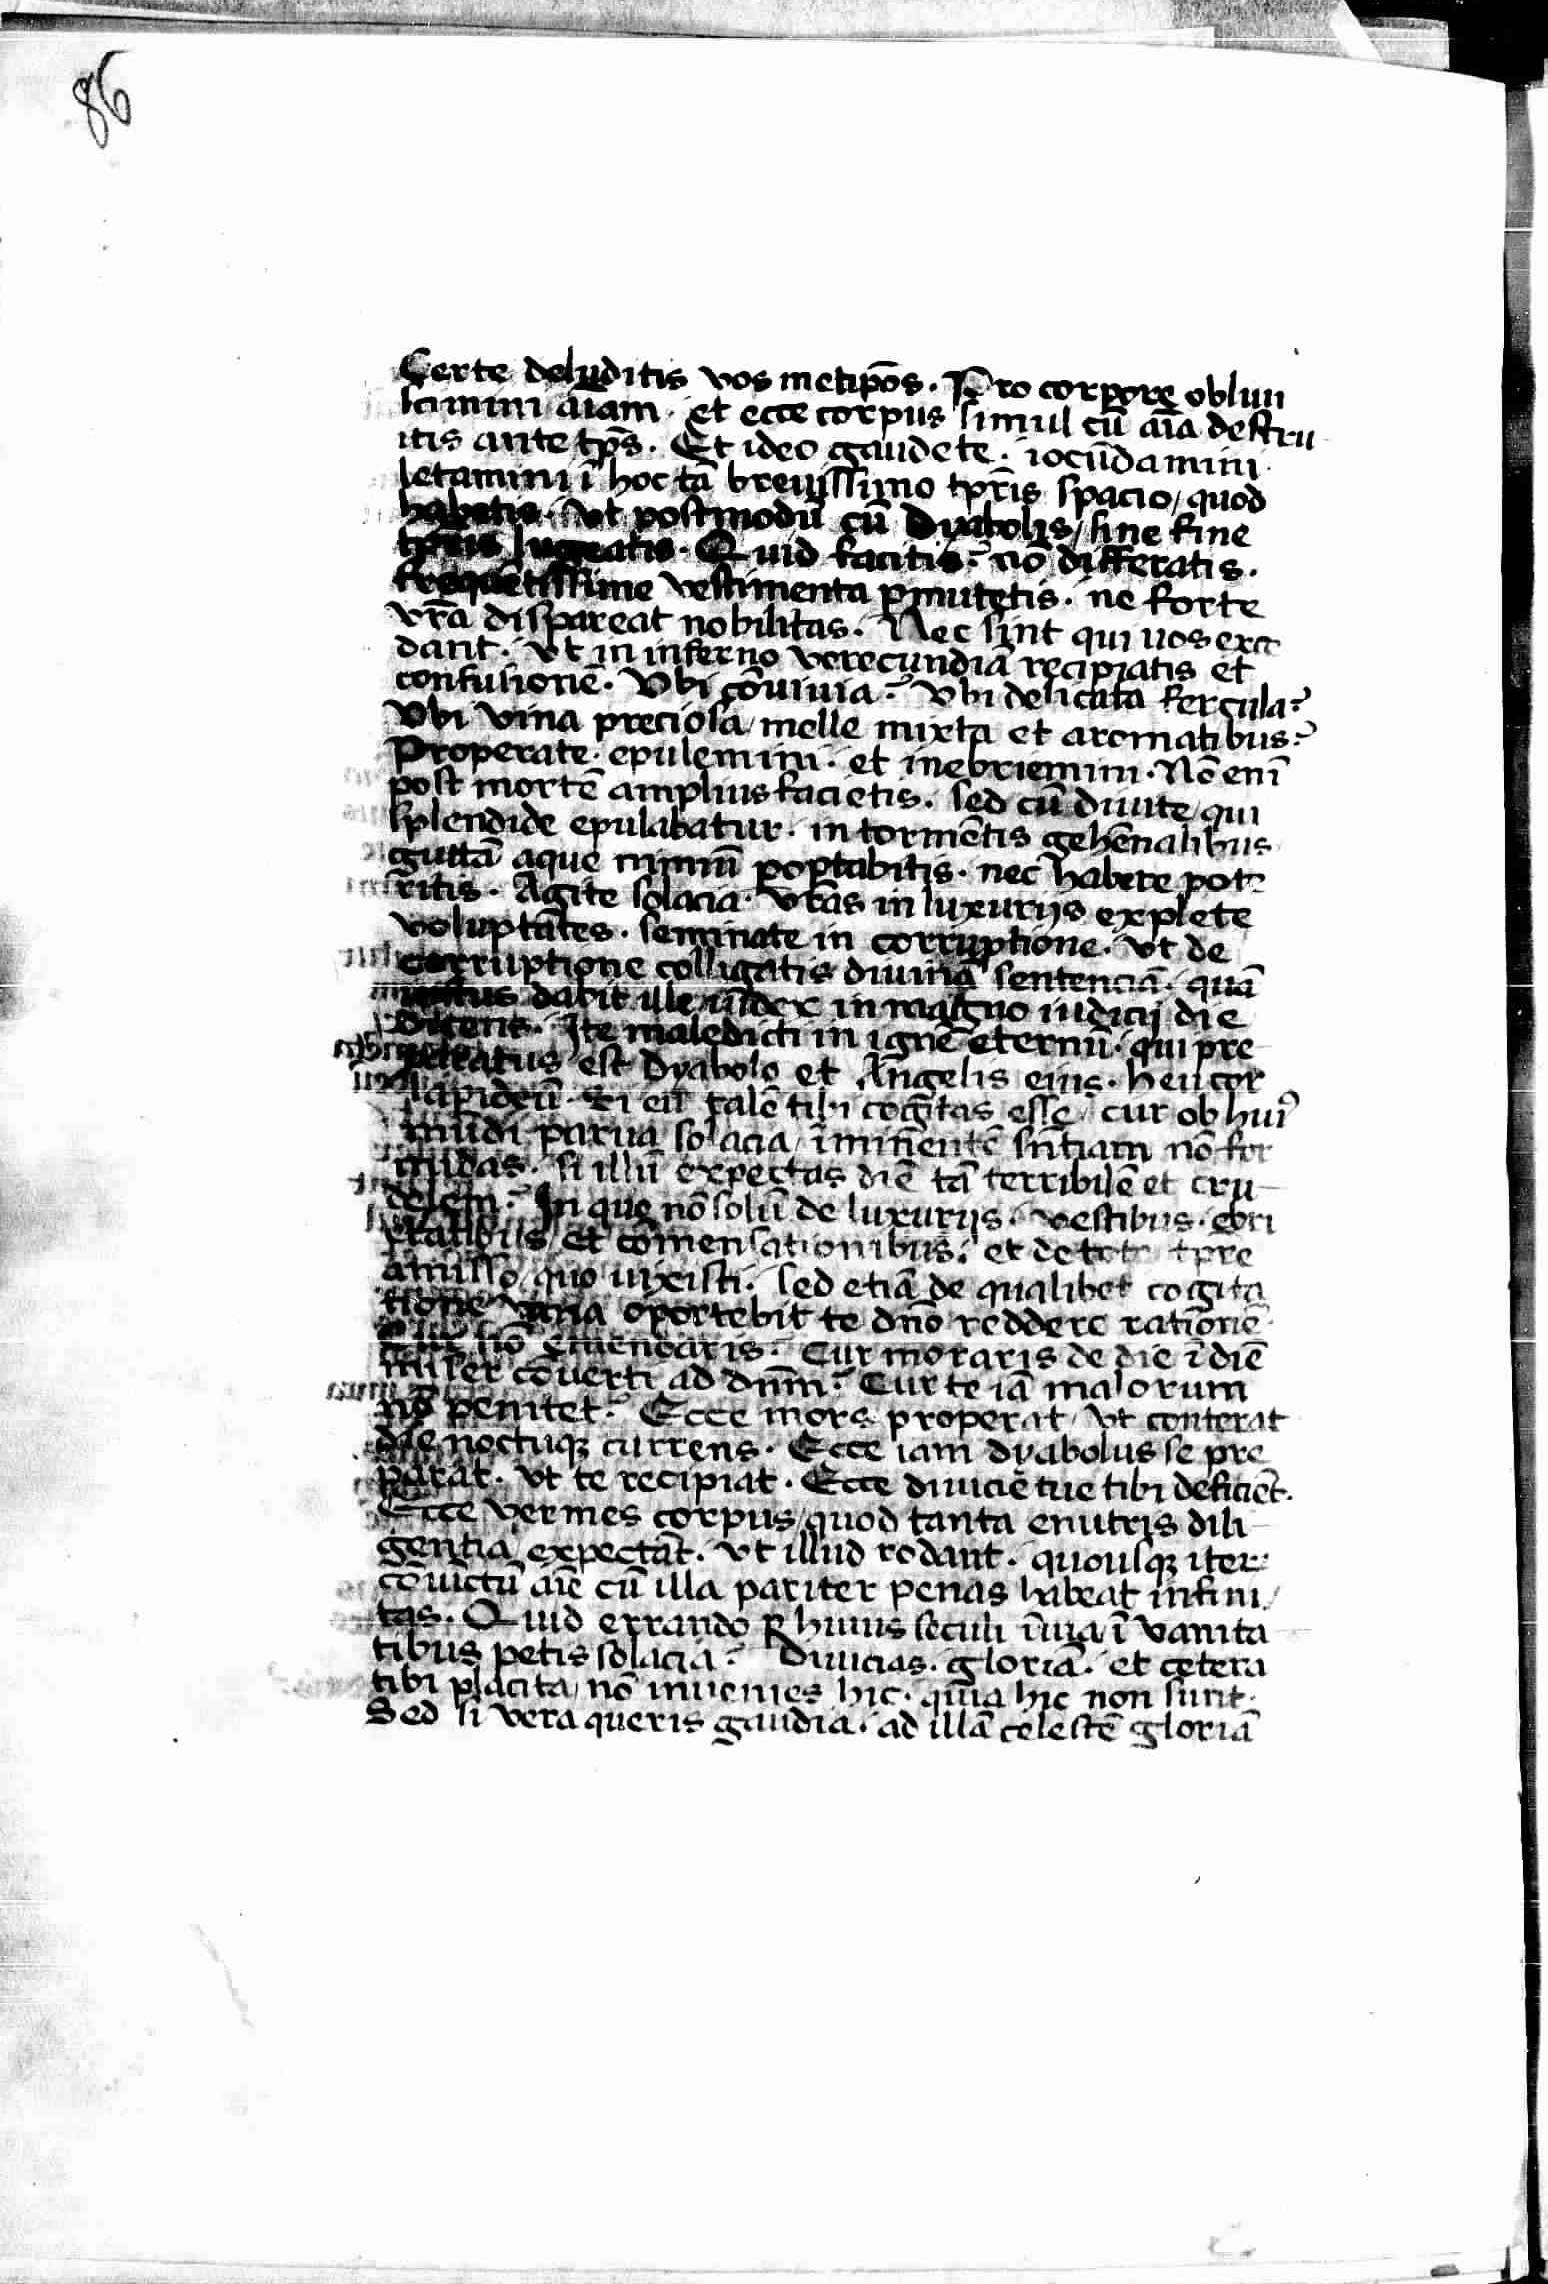 86
Certe deluditis vos metip̄os. Pro corpore obliui
scimini aīam. et ecce corpus simul cū aīa destru
itis ante tp̄s. Et ideo gaudete. iocūdamini.
letamini ī hoc tā breuissimo tp̄ris spacio/ quod
habetis. vt postmodū cū Dyabolis/ sine fine
tp̄ris lugeatis. Quid facitis? nō differatis.
frequētissime vestimenta ꝑmutetis. ne forte
vr̄a dispareat nobilitas. Nec sint qui uos exce
dant. vt in inferno verecundiā recipiatis et
confusionē. Vbi cōuiuia? Vbi delicata fercula?
Vbi vina preciosa/ melle mixta et aromatibus?
Properate. epulemini. et inebriemini. Nō enī
post mortē amplius facietis. sed cū diuite/ qui
splendide epulabatur. in tormētis gehēnalibus
guttā aque minimā ꝑoptabitis. nec habere pote
ritis. Agite solacia. vr̄as in luxurijs explete
voluptates. seminate in corruptione. vt de
corruptione colligatis diuinā sentenciā. quā
iustus dabit ille iudex in magno iudicij die
Dicens. Ite maledicti in ignē eternū. qui pre
paratus est Dyabolo et Angelis eius. heu cor
lapideū. Si eū talē tibi cogitas esse/ cur ob huiꝰ
mūdi parua solacia/ īminentē sn̄tiam nō for
midas. si illū expectas diē tā terribilē et cru
delem? In quo nō solū de luxurijs. vestibus. ebri
etatibus/ et comensationibus. et de toto tp̄re
amisso/ quo uixisti. sed etiā de qualibet cogita
tione vana oportebit te dn̄o reddere rationē.
Cur nō emendaris? Cur moraris de die ī diē
miser cōuerti ad dn̄m? Cur te iā malorum
nō penitet? Ecce mors properat/ vt conterat
die noctuqꝫ currens. Ecce iam dyabolus se pre
parat. vt te recipiat. Ecce diuicie tue tibi deficiēt.
Ecce vermes corpus/ quod tanta enutris dili
gentia/ expectāt. vt illud rodant. quousqꝫ iter
cōuictū aīe cū illa pariter penas habeat infini
tas. Quid errando ꝑ huius seculi īuia/ ī vanita
tibus petis solacia? Diuicias. gloriā. et cetera
tibi placita/ nō inuenies hic. quia hic non sunt.
Sed si vera queris gaudia. ad illā celestē gloriā